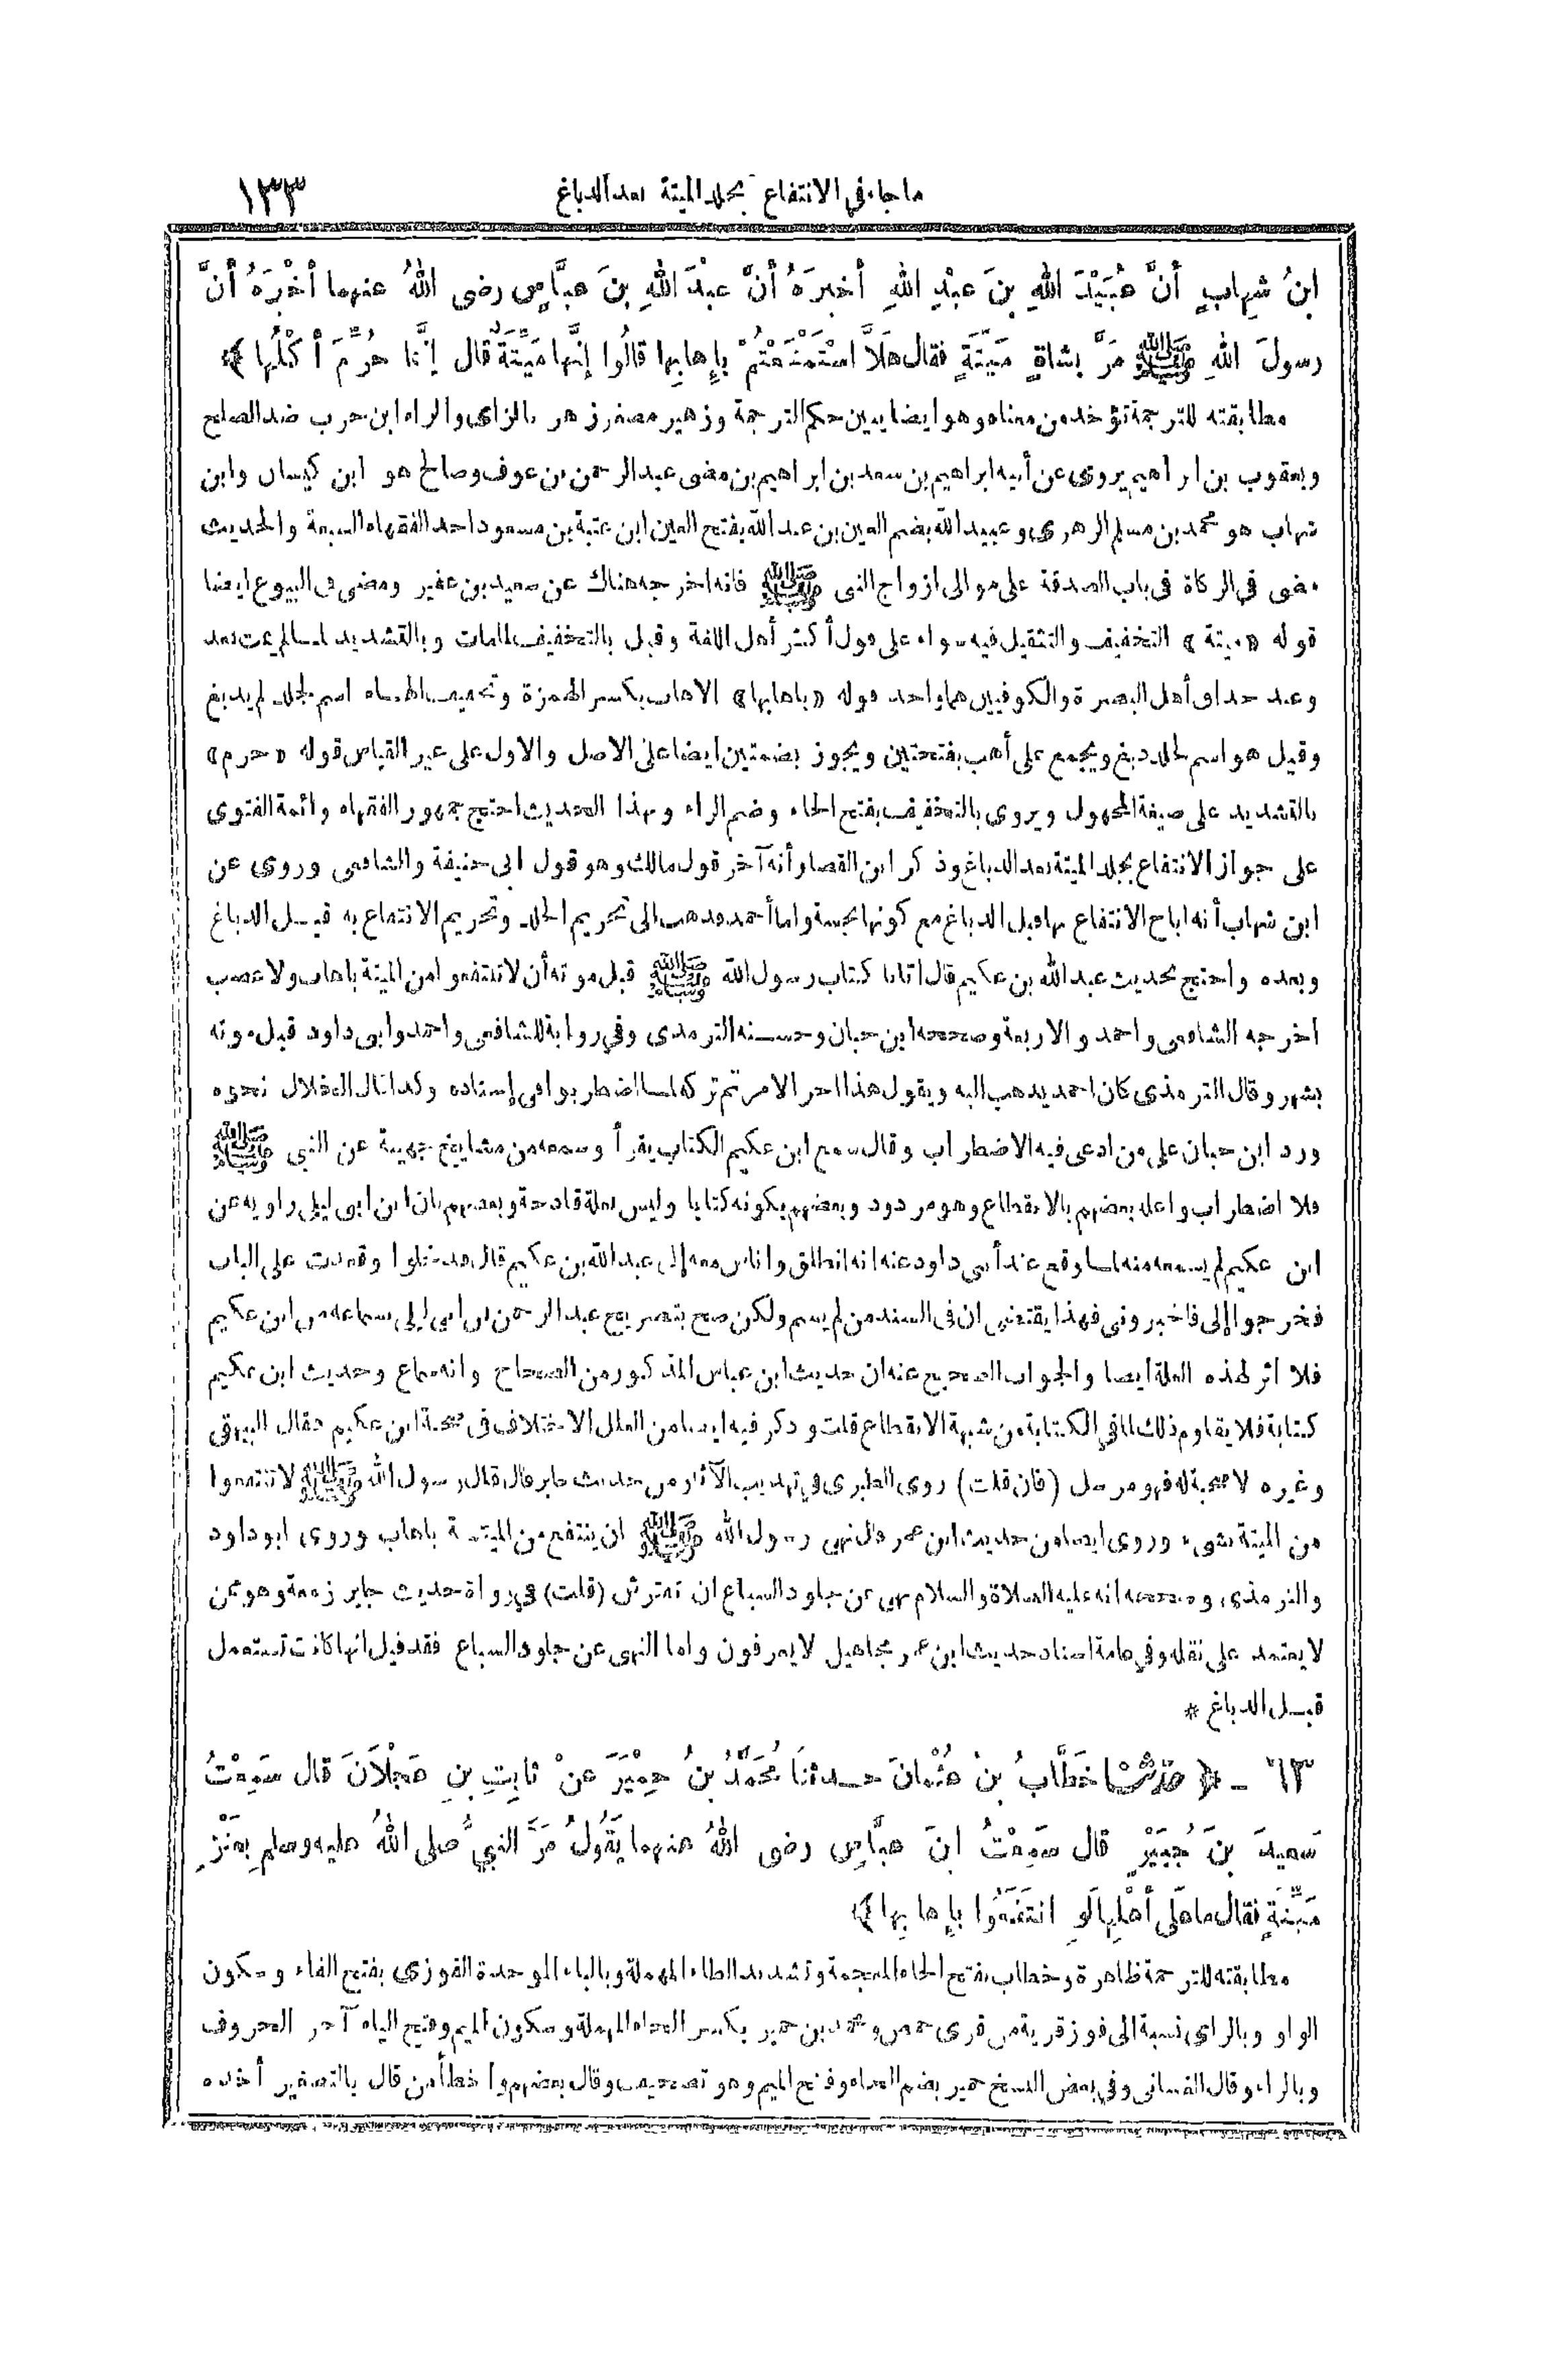 ما جاء في الانتفاع بجلد الميتة بعد الدباغ ١٣٣
ابنُ شِهابٍ أنَّ عُبَيْدَ اللهِ بنَ عبْدِ اللهِ أخبرَهُ أنَّ عبْدَ اللهِ بنَ عبَّاسٍ رضي اللهُ عنهما أخْبَرَهُ أنَّ
رسولَ اللهِ ﷺ مَرَّ بشاةٍ مَيِّتَةٍ فقال هَلاَّ اسْتَمْتَعْتُمْ بإِهابِها قالُوا إنَّها مَيِّتَةٌ قال إنَّما حُرِّمَ أكْلُها ﴾
مطابقته للترجمة تؤخذ من معناه وهو ايضا يبين حكم الترجمة وزهير مصغر زهر بالزاي والراء ابن حرب ضد الصلح
ويعقوب بن ابراهيم يروى عن أبيه ابراهيم بن سعد بن ابراهيم بن مضى عبد الرحمن بن عوف وصالح هو ابن كيسان وابن
شهاب هو محمد بن مسلم الزهري وعبيد الله بضم العين بن عبد الله بفتح العين ابن عتبة بن مسعود احد الفقهاء السبعة والحديث
مضى في الزكاة في باب الصدقة على موالى ازواج النبي ﷺ فانه اخرجه هناك عن سعيد بن عفير ومضى في البيوع ايضا
قوله «ميتة» التخفيف والتثقيل فيه سواء على قول أكثر أهل اللغة وقيل بالتخفيف لما مات وبالتشديد لما لم يمت بعد
وعند حذاق أهل البصرة والكوفيين هما واحد قوله «باهابها» الاهاب بكسر الهمزة وتخفيف الهاء اسم لجلد لم يدبغ
وقيل هو اسم لجلد دبغ ويجمع على أهب بفتحتين ويجوز بضمتين ايضا على الاصل والاول على غير القياس قوله «حرم»
بالتشديد على صيغة المجهول ويروى بالتخفيف بفتح الحاء وضم الراء وبهذا الحديث احتج جمهور الفقهاء وائمة الفتوى
على جواز الانتفاع بجلد الميتة بعد الدباغ وذكر ابن القصار أنه آخر قول مالك وهو قول ابى حنيفة والشافعي وروى عن
ابن شهاب أنه اباح الانتفاع بها قبل الدباغ مع كونها نجسة واما أحمد فذهب الى تحريم الجلد وتحريم الانتفاع به قبل الدباغ
وبعده واحتج بحديث عبد الله بن عكيم قال اتانا كتاب رسول الله ﷺ قبل موته أن لا تنتفعوا من الميتة باهاب ولا عصب
اخرجه الشافعي واحمد والاربعة وصححه ابن حبان وحسنه الترمذى وفي رواية للشافعي واحمد وابى داود قبل موته
بشهر وقال الترمذى كان احمد يذهب اليه ويقول هذا اخر الامر ثم تركه لما اضطربوا في إسناده وكذا قال الخلال نحوه
ورد ابن حبان على من ادعى فيه الاضطراب وقال سمع ابن عكيم الكتاب يقرأ وسمعه من مشايخ جهينة عن النبي ﷺ
فلا اضطراب واعله بعضهم بالانقطاع وهو مردود وبعضهم بكونه كتابا وليس بعلة قادحة وبعضهم بان ابن ابى ليلى راويه عن
ابن عكيم لم يسمعه منه لما وقع عند أبي داود عنه انه انطلق واناس معه إلى عبد الله بن عكيم قال فدخلوا وقعدت على الباب
فخرجوا إلى فاخبروني فهذا يقتضي ان في السند من لم يسم ولكن صح بتصريح عبد الرحمن بن ابي ليلى سماعه من ابن عكيم
فلا اثر لهذه العلة ايضا والجواب الصحيح عنه ان حديث ابن عباس المذكور من الصحاح وانه سماع وحديث ابن عكيم
كتابة فلا يقاوم ذلك لما في الكتابة من شبهة الانقطاع قلت وذكر فيه ايضا من العلل الاختلاف في صحبة ابن عكيم فقال البيهقي
وغيره لا صحبة له فهو مرسل (فان قلت) روى الطبري في تهذيب الآثار من حديث جابر قال قال رسول الله ﷺ لا تنتفعوا
من الميتة بشيء وروى ايضا من حديث ابن عمر قال نهى رسول الله ﷺ ان ينتفع من الميتة باهاب وروى ابو داود
والترمذي وصححه انه عليه الصلاة والسلام نهى عن جلود السباع ان تفترش (قلت) في رواة حديث جابر زمعة وهو ممن
لا يعتمد على نقله وفي عامة اسناد حديث ابن عمر مجاهيل لا يعرفون واما النهى عن جلود السباع فقد قيل انها كانت تستعمل
قبل الدباغ *
٦٣ ـ ﴿ حدّثنا خَطَّابُ بنُ عُثْمانَ حدثنَا مُحَمَّدُ بنُ حِمْيَرَ عنْ ثابِتِ بنِ عَجْلاَنَ قال سَمِعْتُ
سَعيدَ بنَ جُبَيْرٍ قال سَمِعْتُ ابنَ عبَّاسٍ رضى اللهُ عنهما يَقُولُ مَرَّ النبيُّ صلى اللهُ عليه وسلم بِعَنْزٍ
مَيِّتَةٍ فقال ما عَلَى أهْلِها لَوِ انتَفَعُوا بإِهابِها ﴾
مطابقته للترجمة ظاهرة وخطاب بفتح الخاء المعجمة وتشديد الطاء المهملة وبالباء الموحدة الفوزي بفتح الفاء وسكون
الواو وبالزاي نسبة الى فوز قرية من قرى حمص ومحمد بن حمير بكسر الحاء المهملة وسكون الميم وفتح الياء آخر الحروف
وبالراء وقال الغسانى وفي بعض النسخ حمير بضم الحاء وفتح الميم وهو تصحيف وقال بعضهم واخطأ من قال بالتصغير أخذه